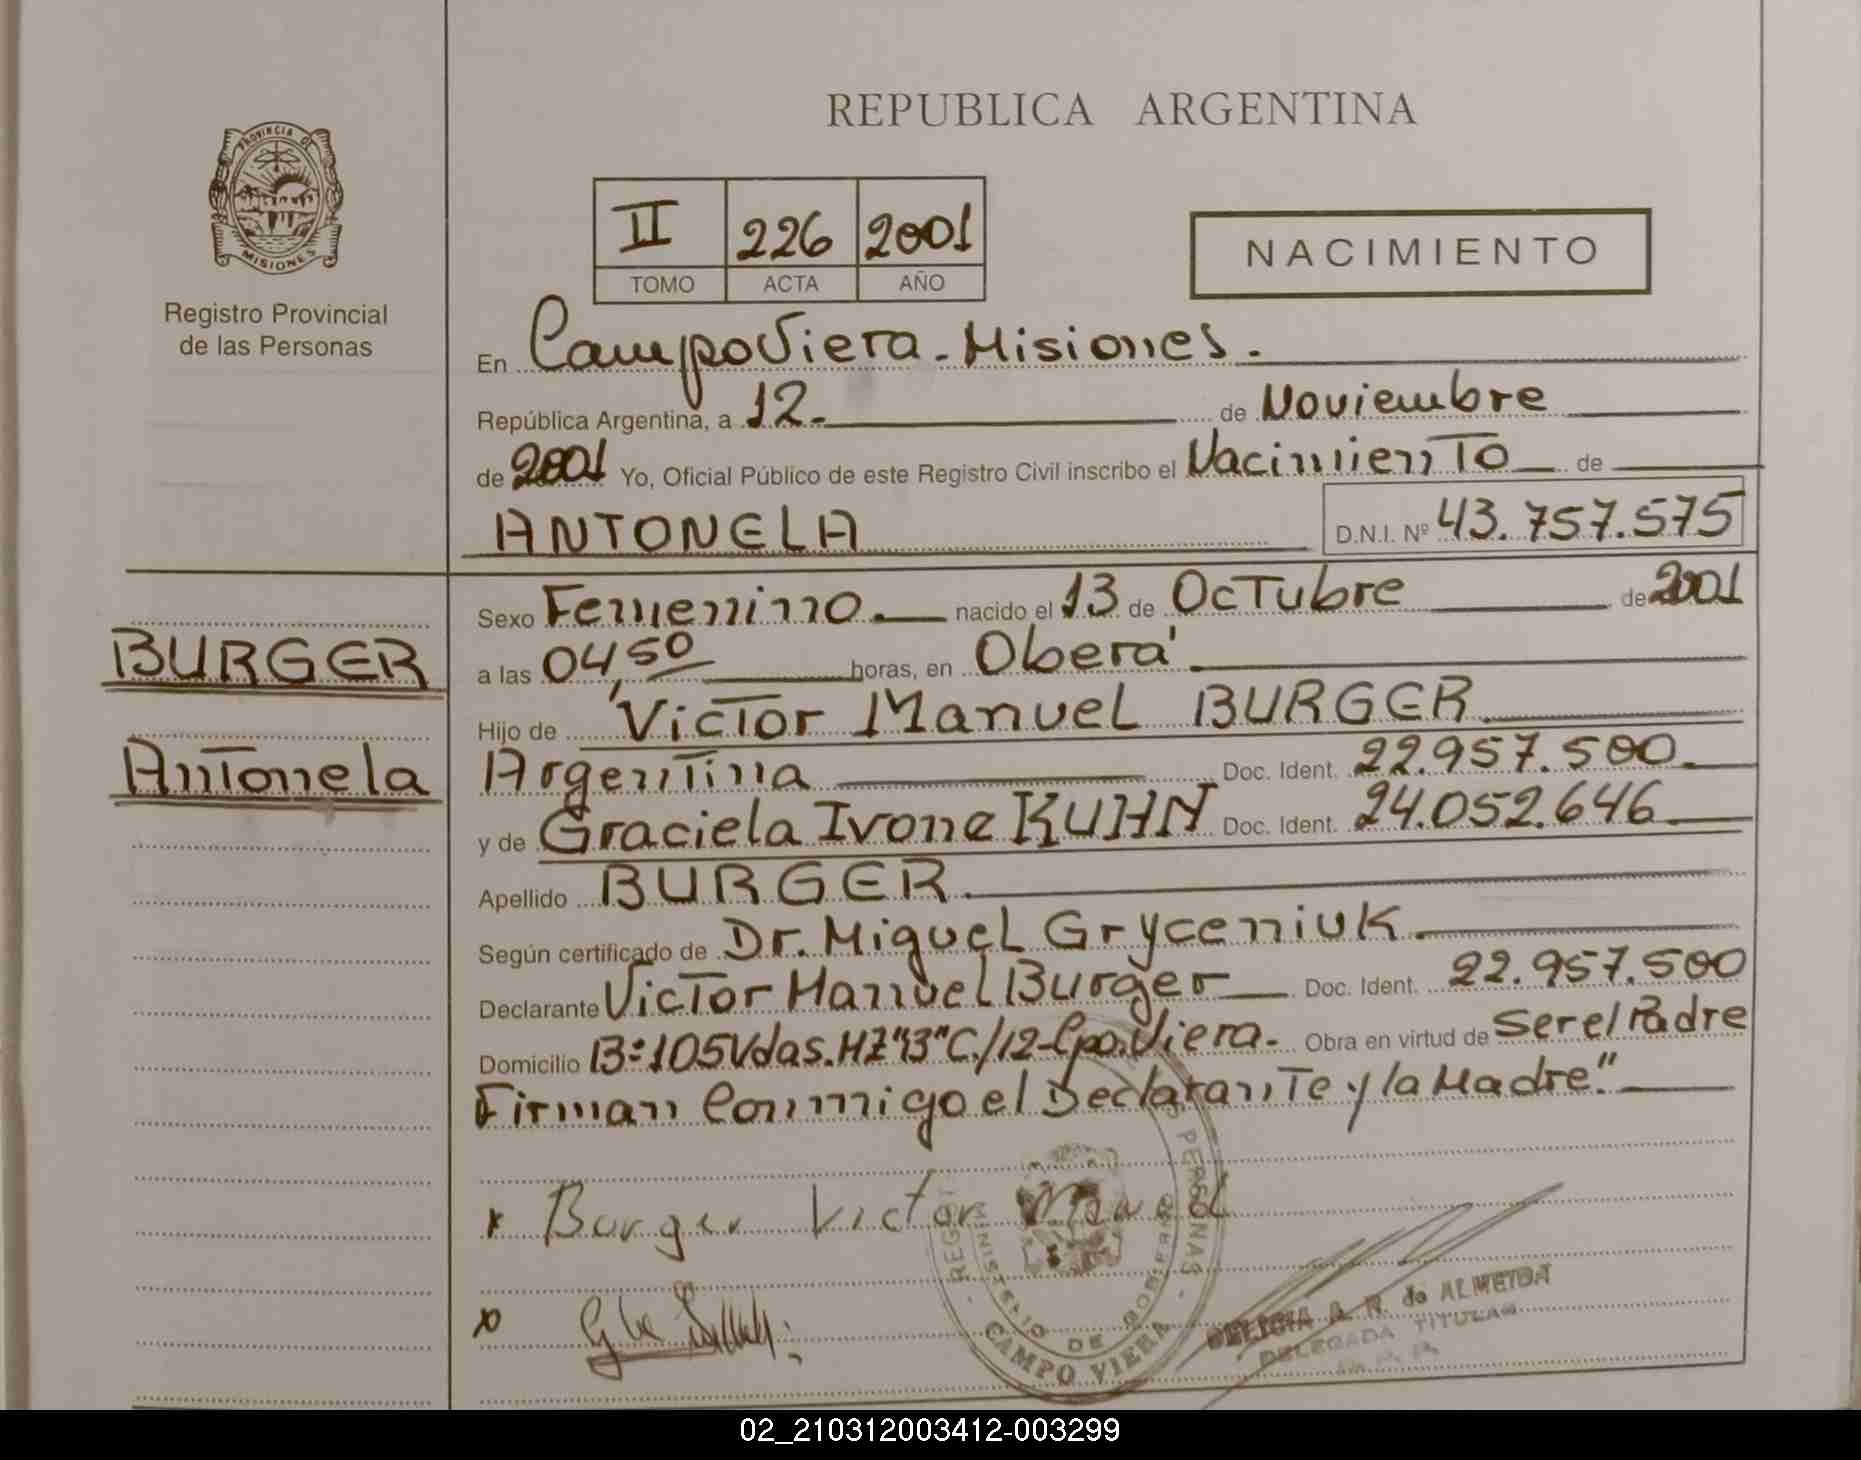 REPUBLICA ARGENTINA
PROVINCIA DE
MISIONES
Registro Provincial
de las Personas
II 226 2001
TOMO ACTA AÑO
NACIMIENTO
En Campo Viera - Misiones.
República Argentina, a 12. de Noviembre
de 2001 Yo, Oficial Público de este Registro Civil inscribo el Nacimiento de
ANTONELA D.N.I. Nº 43.757.575
BURGER
Antonela
Sexo Femenino. nacido el 13 de Octubre de 2001
a las 04,50 horas, en Oberá.
Hijo de Victor Manuel BURGER.
Argentina Doc. Ident. 22.957.500.
y de Graciela Ivone KUHN Doc. Ident. 24.052.646
Apellido BURGER.
Según certificado de Dr. Miguel Gryceniuk.
Declarante Victor Manuel Burger Doc. Ident. 22.957.500
Domicilio B:105 Vdas. MZ "13" C/12-Cpo. Viera. Obra en virtud de ser el Padre
Firman Conmigo el Declarante y la Madre."
x Burger Victor Manuel
x
REGISTRO PERSONAS
MINISTERIO DE GOBIERNO
CAMPO VIERA
DELICIA A. R. de ALMEIDA
DELEGADA TITULAR
02_210312003412-003299